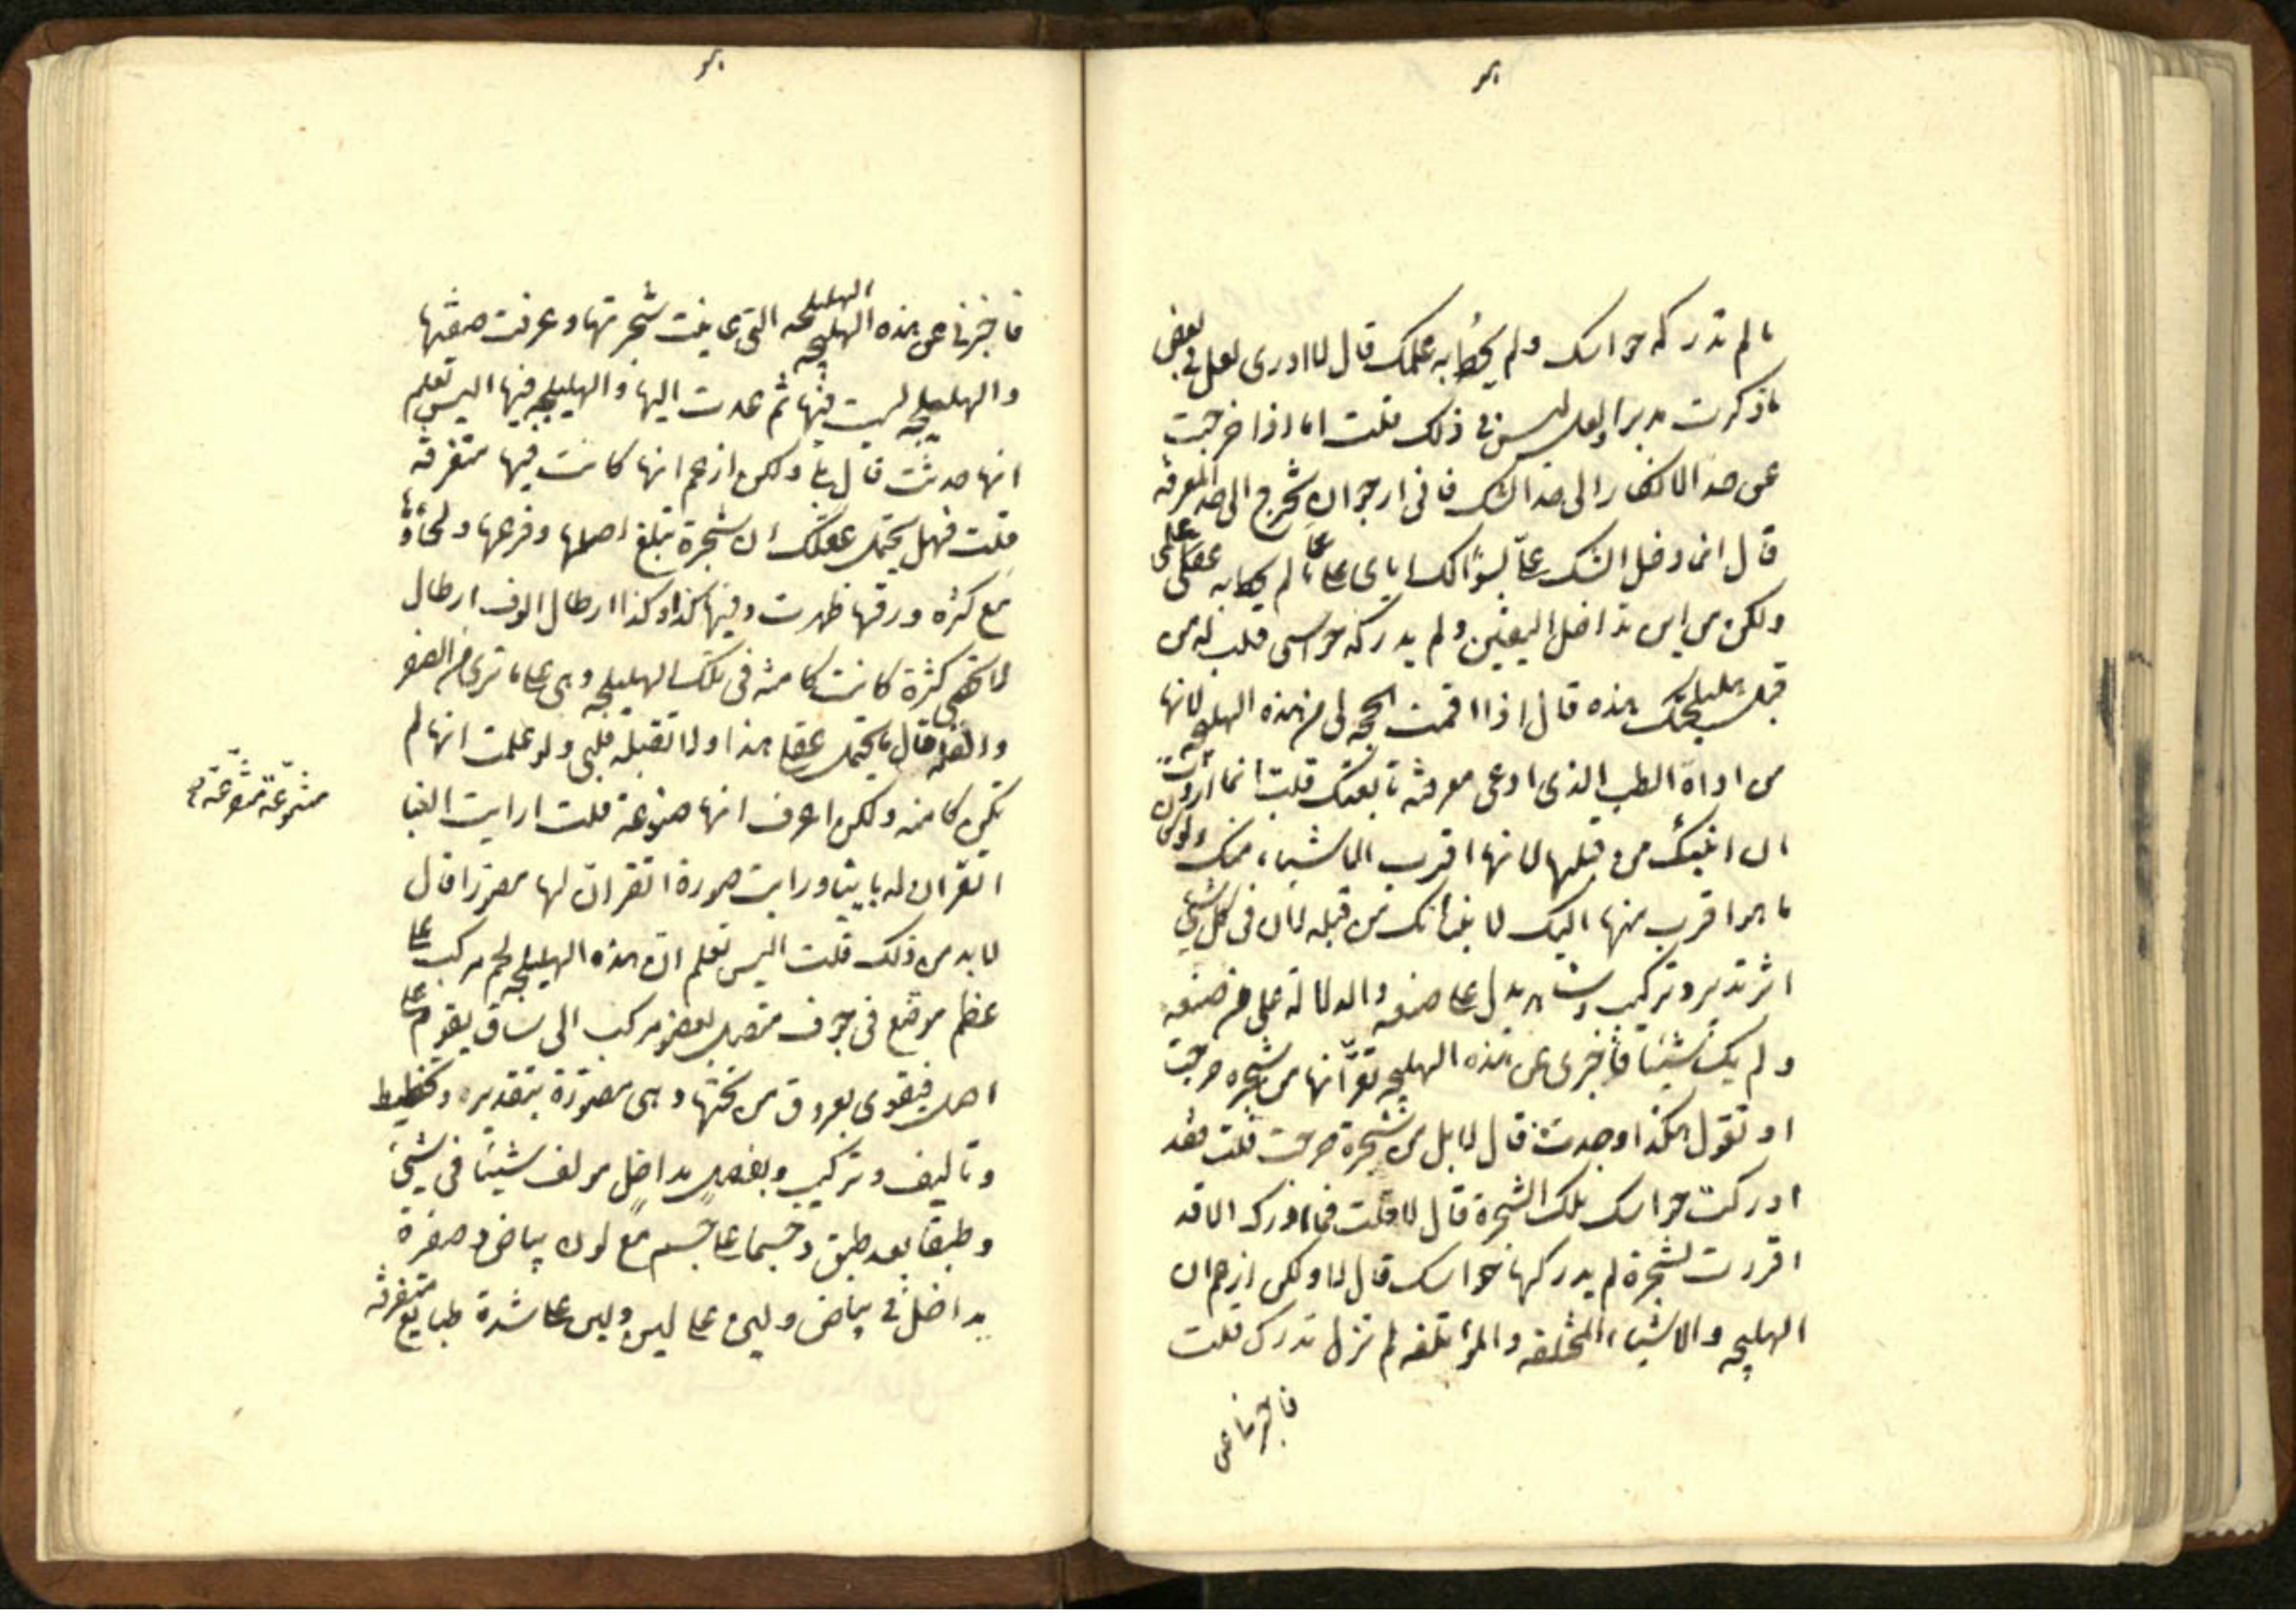 ما لم تدركه حواسك ولم يحط به علمك قال لا ادرى لعل فى بعض
ما ذكرت مدبرا ولعل ليس فى ذلك قلت اما اذا خرجت
عن حد الانكار الى حد الشك فانى ارجو ان تخرج الى حد المعرفه
قال انما دخل الشك على لسؤالك اياى عما لم يحط به علمى
ولكن من اين تداخل اليقين ولم يدركه حواسى قلت له من
قبل هليلجتك هذه قال اذا اقمت الحجه لى من هذه الهليلجه لانها
من اداة الطب الذى ادعى معرفته تابعتك قلت انما اردت
ان اتيتك من قبلها لانها اقرب الاشياء منك ولو كان
ما هو اقرب منها اليك لا تيتك من قبله لان فى كل شئ
اثر تدبير وتركيب وشاهد يدل على صنعه والدلاله على من صنعه
ولم يك شيئا فاخبرنى عن هذه الهليلجه تقر انها من شجره خرجت
او تقول هكذا وجدت قال لا بل من شجرة خرجت قلت فقد
ادركت حواسك تلك الشجرة قال لا قلت فما اراك الا قد
اقررت لشجرة لم يدركها حواسك قال لا ولكن ازعم ان
الهليلجه والاشياء المختلفه والمؤتلفه لم تزل تدرك قلت
فاخبرنا عن
فاخبرنى عن هذه الهليلجه التى عاينت شجرتها وعرفت صفتها
والهليلجه ليست فيها ثم عدت اليها والهليلجه فيها اليس تعلم
انها حدثت قال بلى ولكن ازعم انها كانت فيها متفرقه
قلت فهل يحتمل عقلك ان شجرة تبلغ اصلها وفرعها ولحاؤها
مع كثره ورقها ظهرت وفيها كذا وكذا ارطال الوف ارطال
لا تحصى كثرة كانت كامنه فى تلك الهليلجه وهى على ما ترى من الصغر
والقله قال ما يحتمل عقلى هذا ولا تقبله قلبى ولو علمت انها لم
تكن كامنه ولكن اعرف انها مصنوعة قلت ارايت الفنا
اتقر ان له بانيا ورايت صورة اتقر ان لها مصورا قال
لابد من ذلك قلت اليس تعلم ان هذه الهليلجه لحم مركب على
عظم موضع فى جوف متصل بغصن مركب الى ساق يقوم على
اصل فيقوى بعروق من تحتها وهى مصورة بتقدير وتخطيط
وتاليف وتركيب وتفصيل مداخل مؤلف شيئا فى شئ
وطبقا بعد طبق وجسما على جسم مع لون بياض وصفرة
مداخل فى بياض ولين على لين ولين على شدة طبايع متفرقه